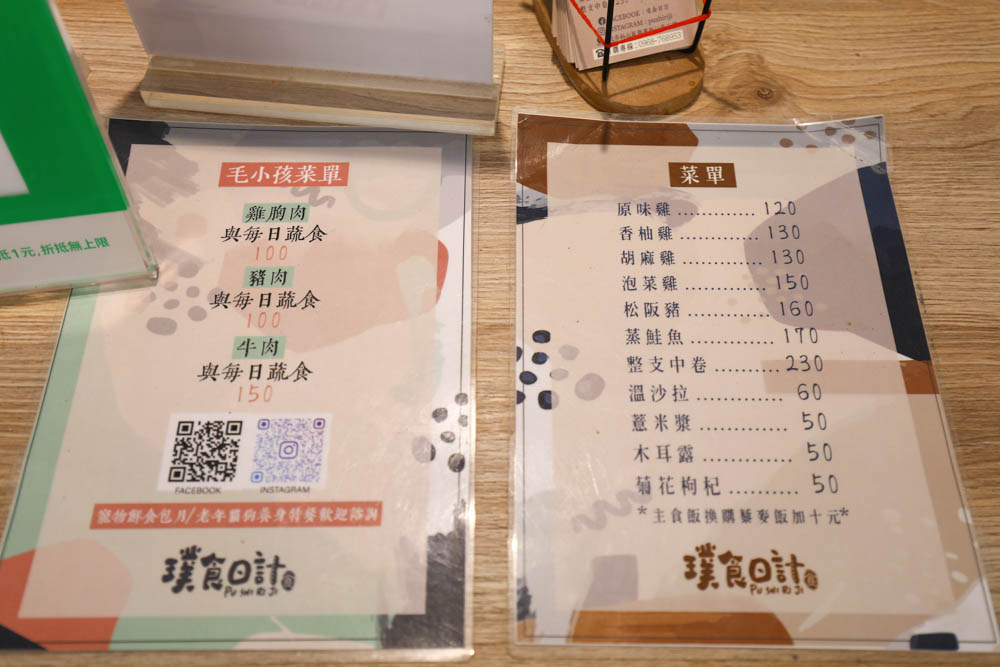 FACEBOOK：璞食日計
INSTAGRAM：pushiriji
訂購專線：0968-768953
抵1元,折抵無上限
毛小孩菜單
雞胸肉
與每日蔬食
100
豬肉
與每日蔬食
100
牛肉
與每日蔬食
150
FACEBOOK
INSTAGRAM
寵物鮮食包月/老年貓狗養身特餐歡迎諮詢
璞食日計
PU SHI RI JI
菜單
原味雞............120
香柚雞............130
胡麻雞............130
泡菜雞............150
松阪豬............160
蒸鮭魚............170
整支中卷..........230
溫沙拉............60
薏米漿............50
木耳露............50
菊花枸杞..........50
*主食飯換購藜麥飯加十元*
璞食日計
PU SHI RI JI